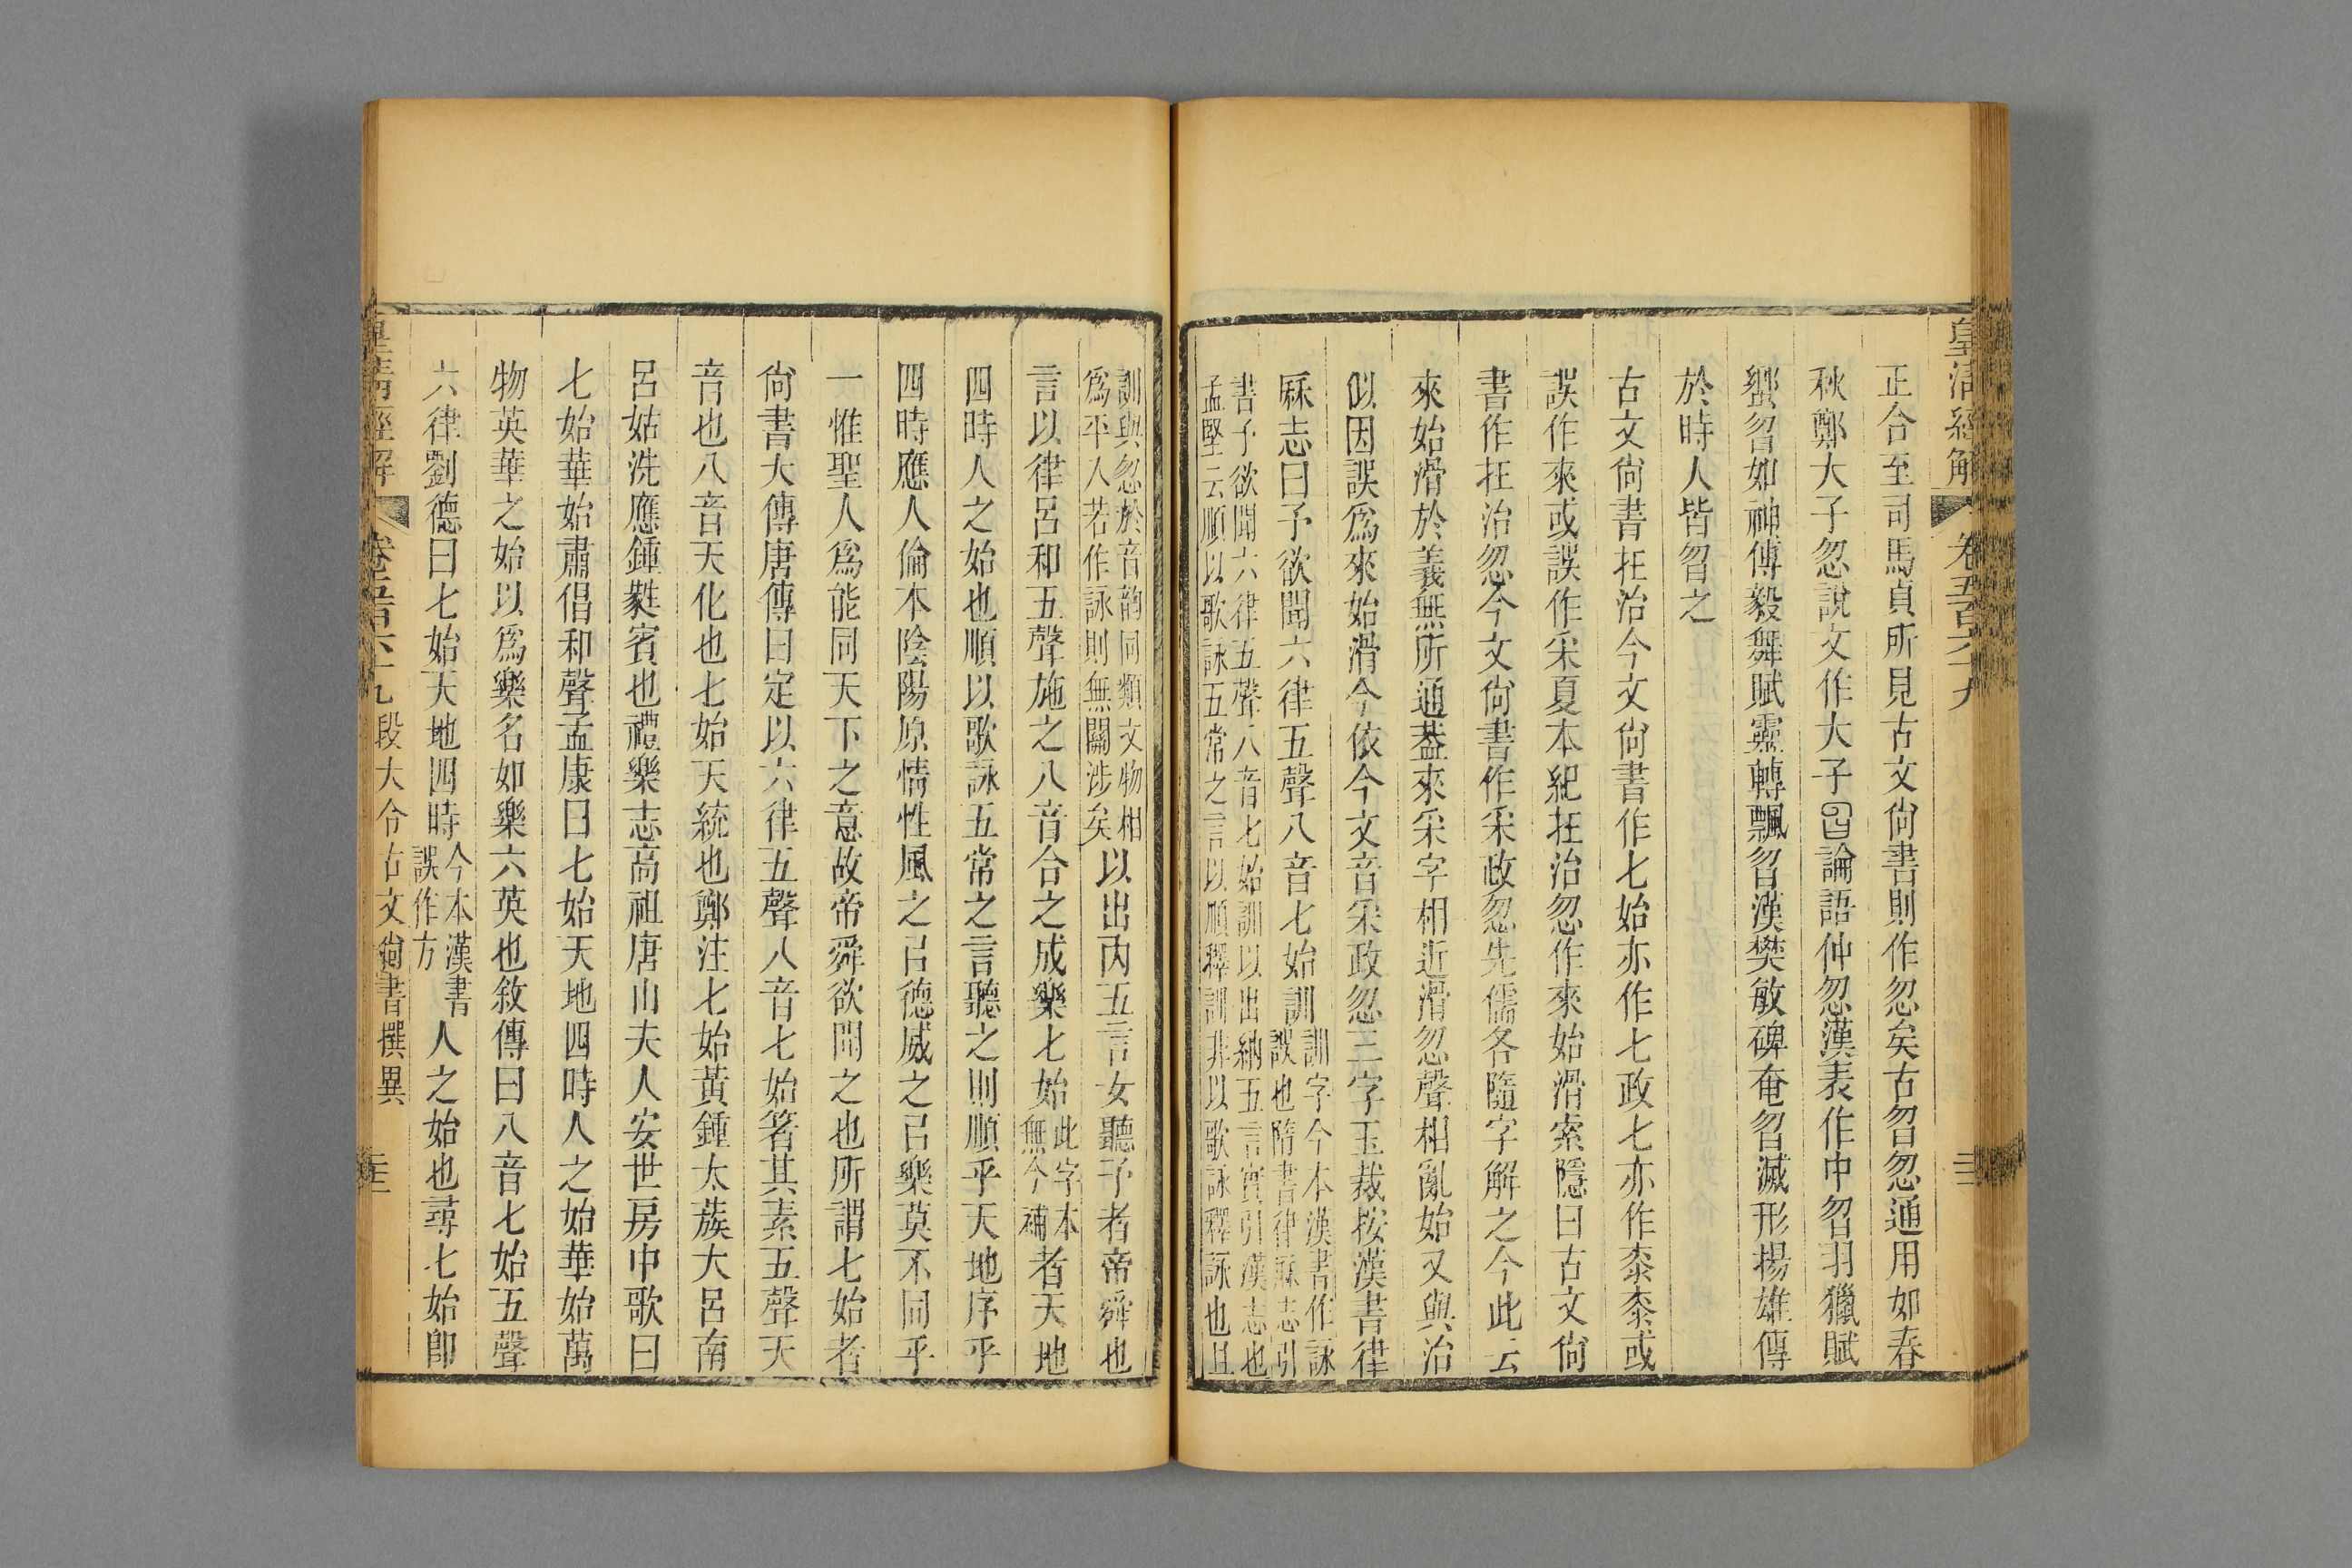 皇清經解 卷五百六十九
正合至司馬貞所見古文尙書則作忽矣古曶忽通用如春
秋鄭大子忽說文作大子曶論語仲忽漢表作中曶羽獵賦
蠁曶如神傅毅舞賦雲轉飄曶漢樊敏碑奄曶滅形揚雄傳
於時人皆曶之
古文尙書在治今文尙書作七始亦作七政七亦作桼桼或
誤作來或誤作采夏本紀在治忽作來始滑索隱曰古文尙
書作在治忽今文尙書作采政忽先儒各隨字解之今此云
來始滑於義無所通葢來采字相近滑忽聲相亂始又與治
似因誤爲來始滑今依今文音采政忽三字玉裁按漢書律
厤志曰予欲聞六律五聲八音七始訓訓字今本漢書作詠誤也隋書律厤志引
書予欲聞六律五聲八音七始訓以出納五言實引漢志也
孟堅云順以歌詠五常之言以順釋訓非以歌詠釋詠也且
訓與忽於音韵同類文物相
爲平入若作詠則無關涉矣以出內五言女聽予者帝舜也
言以律呂和五聲施之八音合之成樂七始此字今本無今補者天地
四時人之始也順以歌詠五常之言聽之則順乎天地序乎
四時應人倫本陰陽原情性風之㠯德感之㠯樂莫不同乎
一惟聖人爲能同天下之意故帝舜欲聞之也所謂七始者
尙書大傳唐傳曰定以六律五聲八音七始箸其素五聲天
音也八音天化也七始天統也鄭注七始黃鍾太蔟大呂南
呂姑洗應鍾蕤賓也禮樂志高祖唐山夫人安世房中歌曰
七始華始肅倡和聲孟康曰七始天地四時人之始華始萬
物英華之始以爲樂名如樂六英也敘傳曰八音七始五聲
六律劉德曰七始天地四時今本漢書誤作方人之始也尋七始卽
皇清經解 卷五百六十九 段大令古文尙書撰異